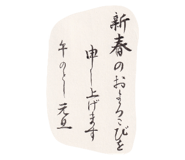 新春のおよろこびを
申し上げます
午のとし 元旦